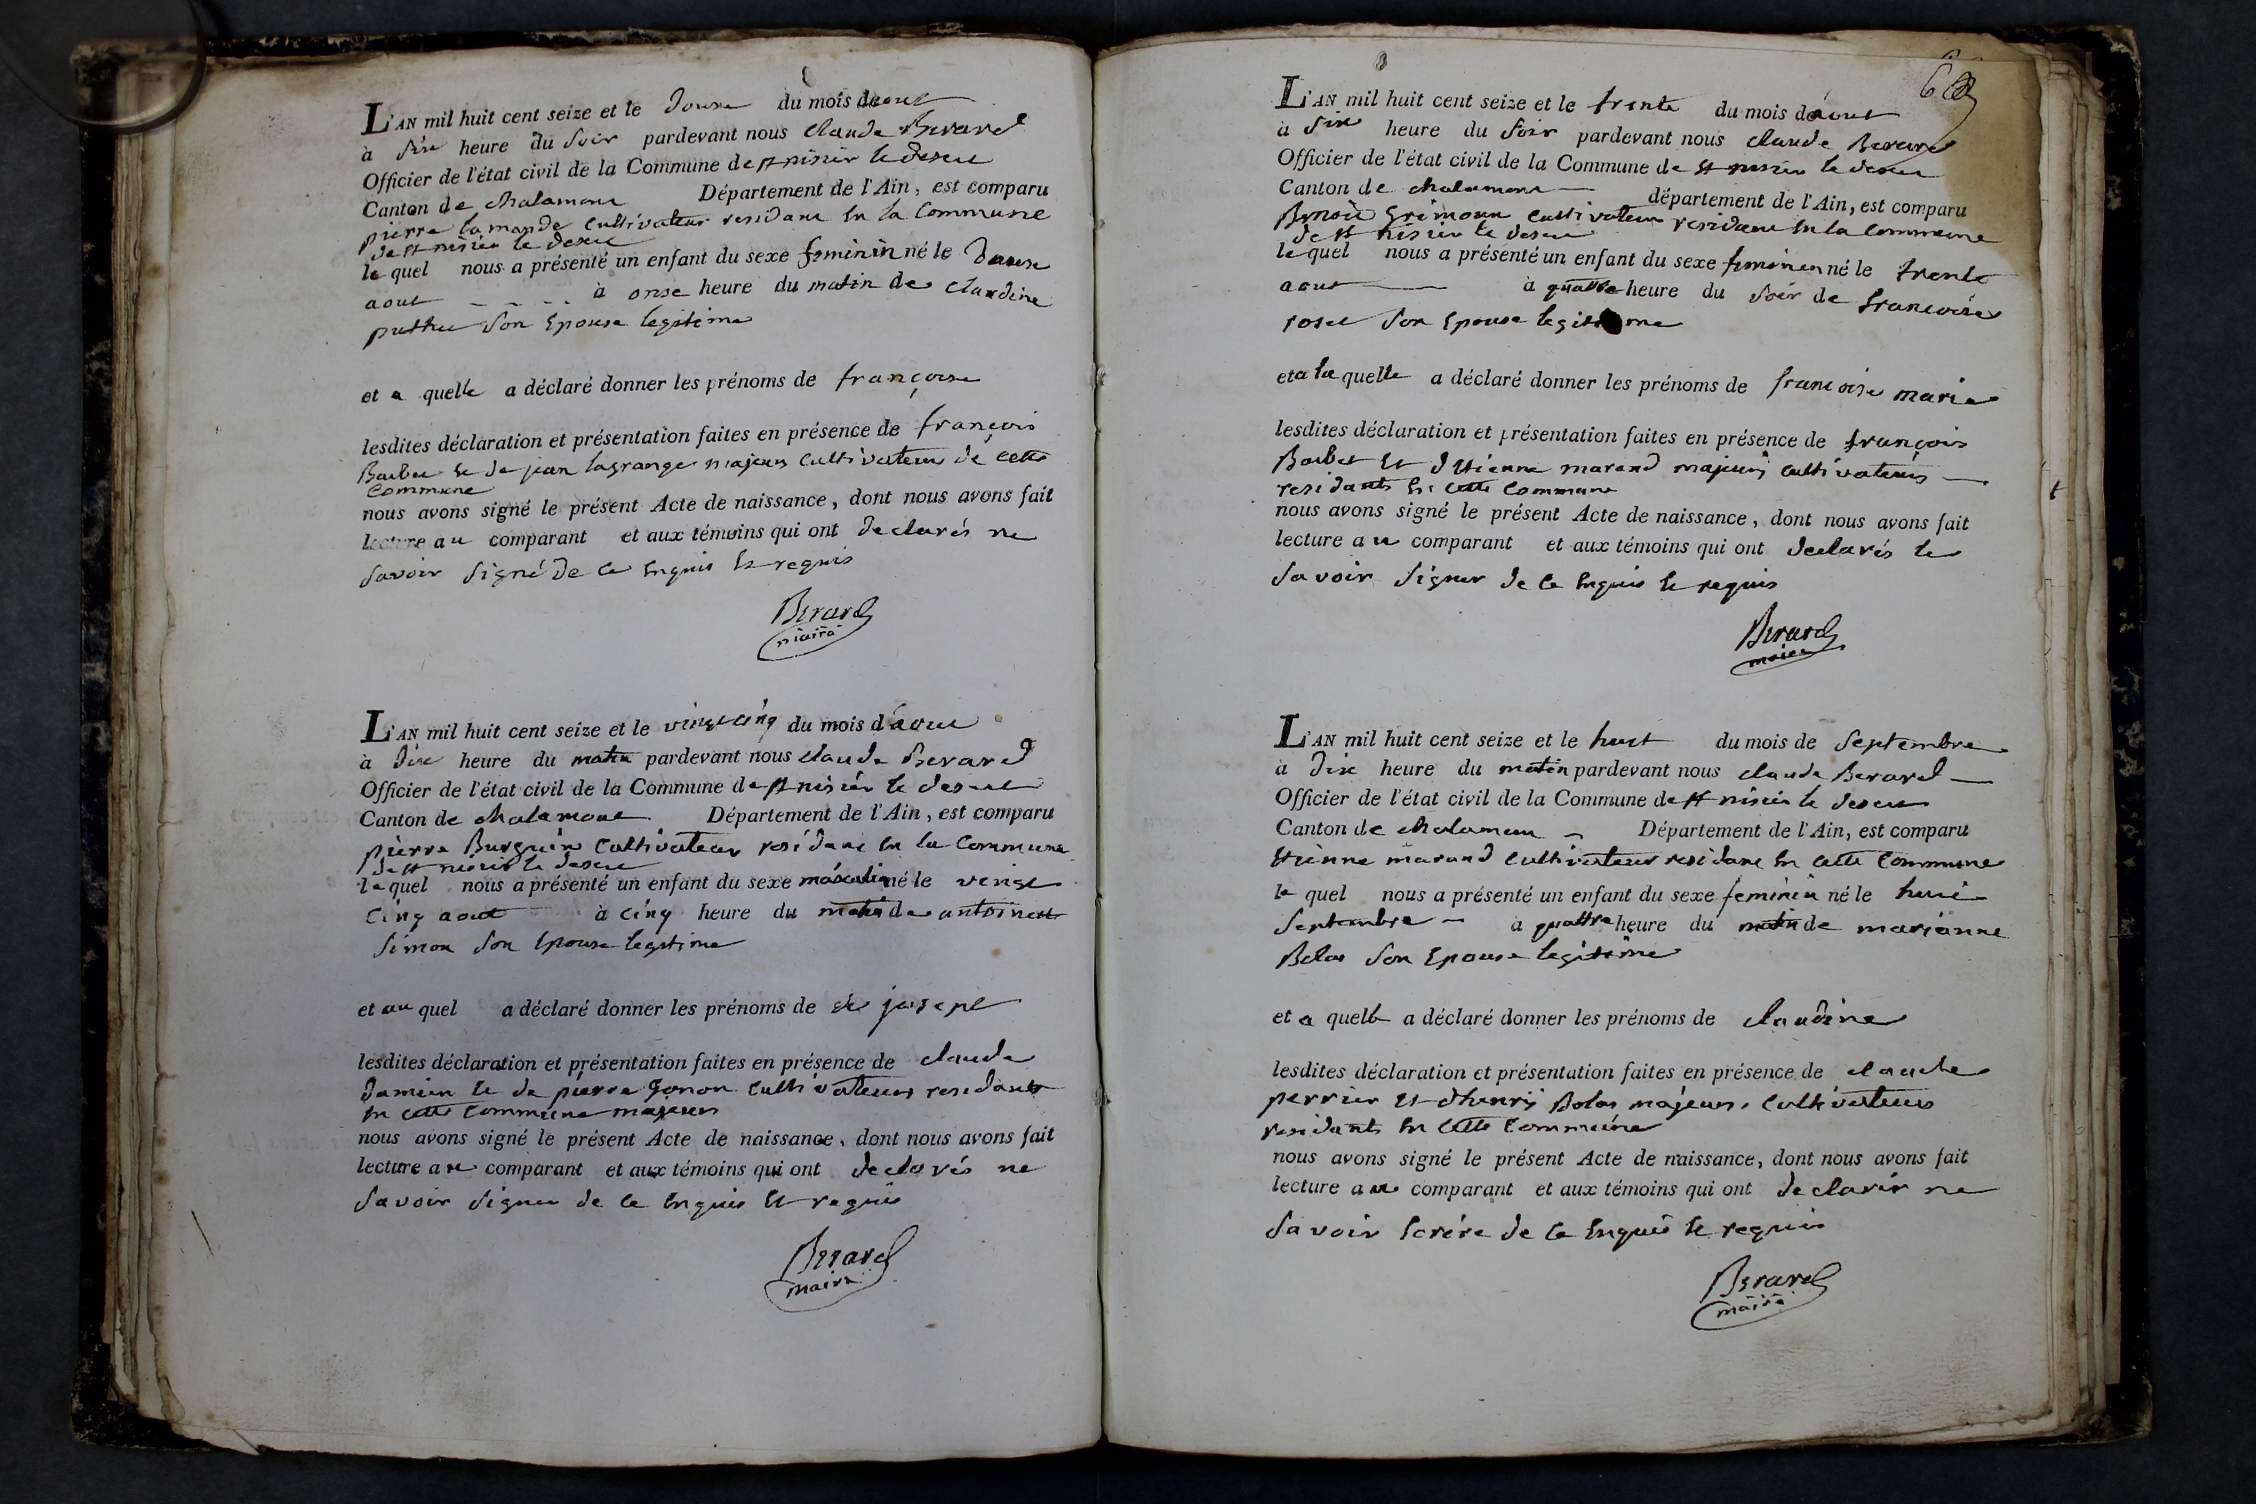 L'AN mil huit cent seize et le douse du mois daout
à six heure du soir pardevant nous claude Berard
Officier de l'état civil de la Commune de st nisier le desert
Canton de chalamont Département de l'Ain, est comparu
pierre lamande cultivateur residant en la commune
de st nisier le desert
le quel nous a présenté un enfant du sexe feminin né le douse
aout à onse heure du matin de claudine
puthet son epouse legitime
et a quelle a déclaré donner les prénoms de françoise
lesdites déclaration et présentation faites en présence de françois
Barbet et de jean lagrange majeurs cultivateurs de cette
commune
nous avons signé le présent Acte de naissance, dont nous avons fait
lecture au comparant et aux témoins qui ont declarés ne
savoir signé de ce enquis et requis
Berard
maire
L'AN mil huit cent seize et le vingt cinq du mois d'aout
à dix heure du matin pardevant nous claude Berard
Officier de l'état civil de la Commune de st nisier le desert
Canton de chalamont Département de l'Ain, est comparu
pierre Burguin cultivateur residant en la commune
de st nisier le desert
le quel nous a présenté un enfant du sexe masculin né le vingt
cinq aout à cinq heure du matin de antoinette
simon son epouse legitime
et au quel a déclaré donner les prénoms de joseph
lesdites déclaration et présentation faites en présence de claude
damien et de pierre gonon cultivateurs residants
en cette commune majeurs
nous avons signé le présent Acte de naissance, dont nous avons fait
lecture au comparant et aux témoins qui ont declarés ne
savoir signer de ce enquis et requis
Berard
maire
L'AN mil huit cent seize et le trente du mois daout
à six heure du soir pardevant nous claude Berard
Officier de l'état civil de la Commune de st nisier le desert
Canton de chalamont département de l'Ain, est comparu
Benoit Grimoun cultivateur residant en la commune
de st nisier le desert
le quel nous a présenté un enfant du sexe feminin né le trente
aout à quattre heure du soir de francoise
roset son epouse legitime
et a la quelle a déclaré donner les prénoms de francoise marie
lesdites déclaration et présentation faites en présence de françois
Barbet et d'etienne marand majeurs cultivateurs
residants en cette commune
nous avons signé le présent Acte de naissance, dont nous avons fait
lecture au comparant et aux témoins qui ont declarés le
savoir signer de ce enquis et requis
Berard
maire
L'AN mil huit cent seize et le huit du mois de septembre
à dix heure du matin pardevant nous claude Berard
Officier de l'état civil de la Commune de st nisier le desert
Canton de chalamon Département de l'Ain, est comparu
etienne marand cultivateur residant en cette commune
le quel nous a présenté un enfant du sexe feminin né le huit
septembre à quattre heure du matin de marianne
Bolas son epouse legitime
et a quelle a déclaré donner les prénoms de claudine
lesdites déclaration et présentation faites en présence de claude
perrier et d'henri Bolas majeurs cultivateurs
residants en cette commune
nous avons signé le présent Acte de naissance, dont nous avons fait
lecture au comparant et aux témoins qui ont declarér ne
savoir scrire de ce enquis et requis
Berard
maire